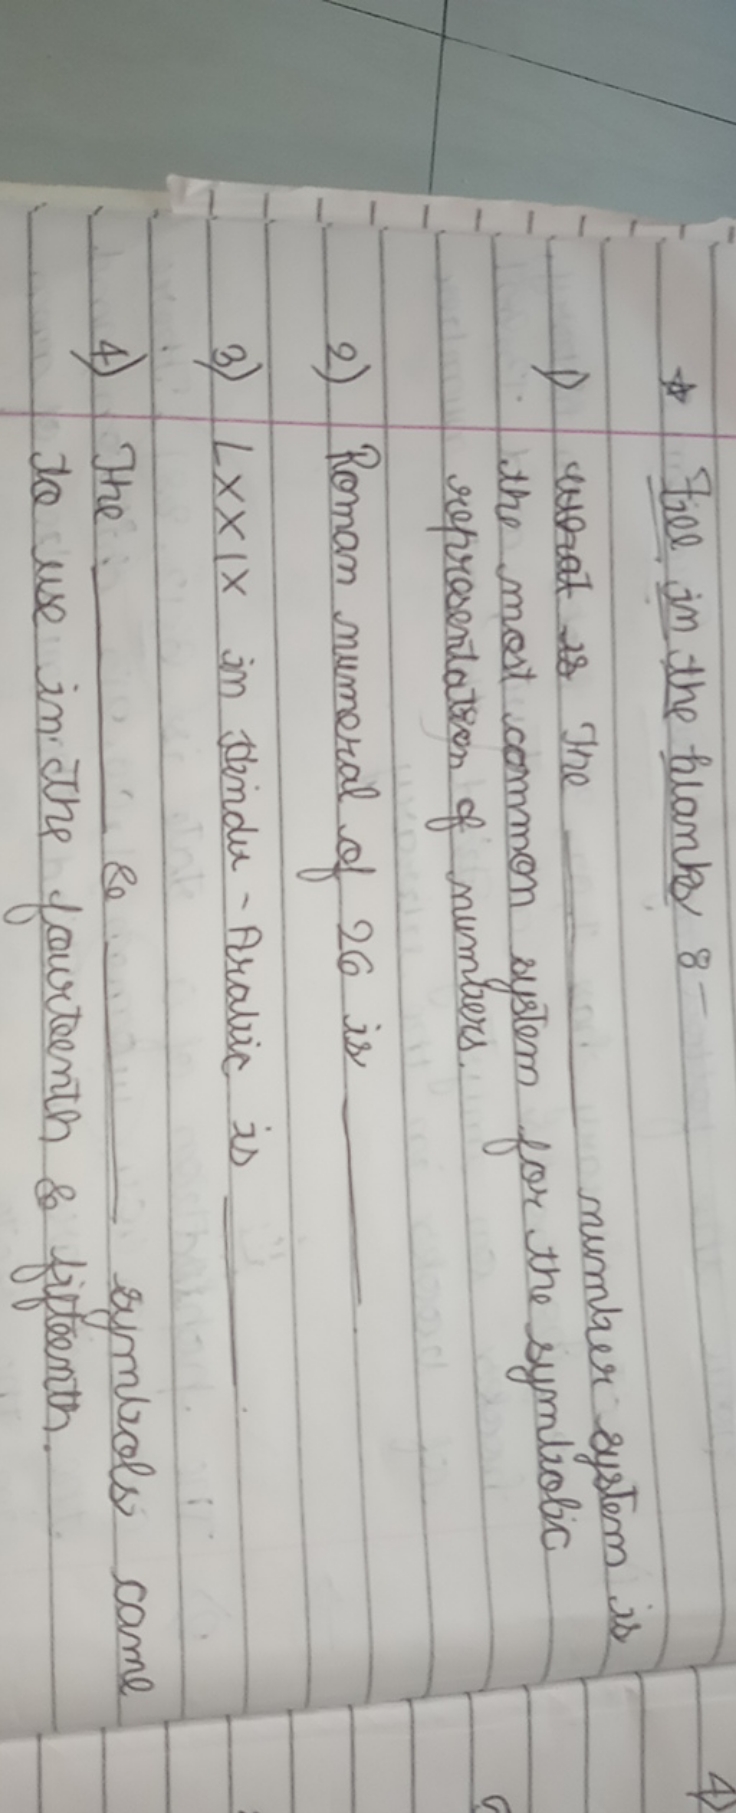 ☆ Fill in the blanks 8-
1) what is The ______ number system is
the most common system for the symbolic
representation of numbers.
2) Roman numeral of 26 is ______
3) LXXIX in Hindu - Arabic is ______
4) The ______ & ______ symbols came
to use in the fourteenth & fifteenth.
4)